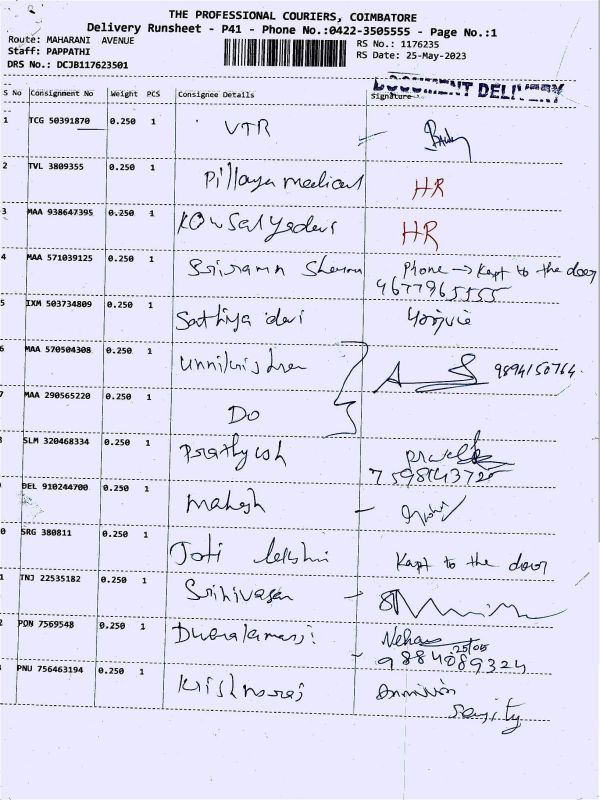 THE PROFESSIONAL COURIERS, COIMBATORE
Delivery Runsheet - P41 - Phone No.:0422-3505555 - Page No.:1
Route: MAHARANI AVENUE
RS No.: 1176235
Staff: PAPPATHI
RS Date: 25-May-2023
DRS No.: DCJB117623501
DOCUMENT DELIVERY
S No Consignment No Weight PCS Consignee Details Signature
1 TCG 50391870 0.250 1 VTR
2 TVL 3809355 0.250 1 Pillaya medical HR
3 MAA 938647395 0.250 1 KOwsalyadevi HR
4 MAA 571039125 0.250 1 Sriramn Sharma Phone → Kept to the door
9677965555
5 IXM 503734809 0.250 1 Sathiya devi
6 MAA 570504308 0.250 1 Unnikrishnan 9894150764
7 MAA 290565220 0.250 1 Do
8 SLM 320468334 0.250 1 Prathyush
7598143725
DEL 910244700 0.250 1 Mahesh
0 SRG 380811 0.250 1 Joti lekshmi Kapt to the door
1 TNJ 22535182 0.250 1 Srinivasan
2 PON 7569548 0.250 1 Neha
25/05
9884089324
PNU 756463194 0.250 1 Krishnaraj